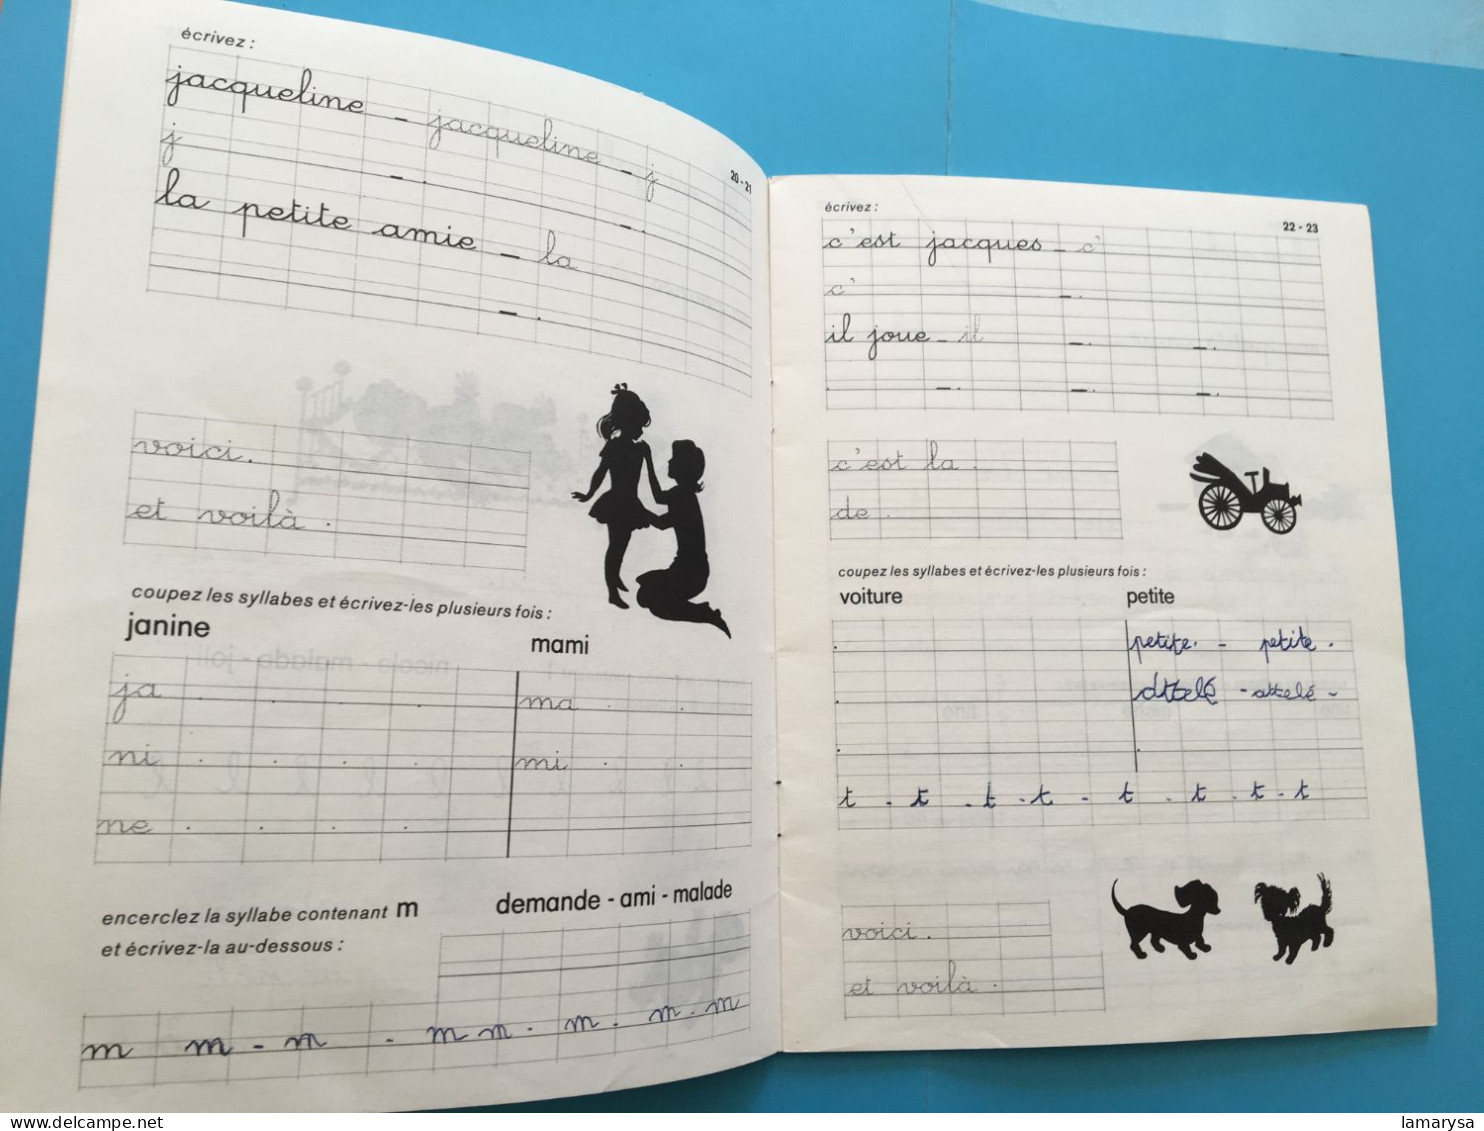 écrivez :
20 - 21
jacqueline - jacqueline - j
j - . - .
la petite amie - la
- .
voici .
et voilà .
coupez les syllabes et écrivez-les plusieurs fois :
janine mami
ja . . . . ma . .
ni . . . . mi . .
ne . . . .
encerclez la syllabe contenant m
et écrivez-la au-dessous :
demande - ami - malade
m m - m - m m . m . m . m
écrivez :
22 - 23
c'est jacques - c'
c' - .
il joue - il - . - .
. - . - . - .
c'est la .
de .
coupez les syllabes et écrivez-les plusieurs fois :
voiture petite
petite . - petite .
- attelé -
t . t . t . t - t . t . t . t
voici .
et voilà .
lamarysa